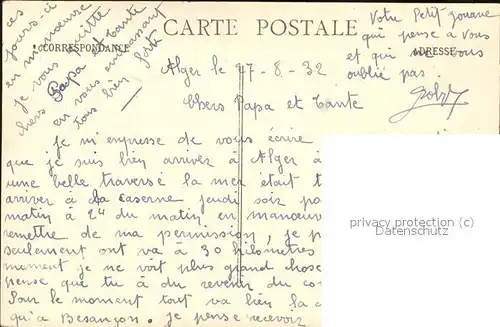 CARTE POSTALE
CORRESPONDANCE
ADRESSE
Alger le 27-8-32
Chers Papa et Tante
Je m'espresse de vous écrire
que je suis bien arriver à Alger à
une belle traversé la mer était t
arriver à la caserne jeudi soir po
matin à 2h du matin en manœuvre
remettre de ma permission, je p
seulement ont va à 30 kilomètres
moment je ne voit plus grand chose
pense que tu à du revenir du co
Pour le moment tout va bien la c
qu'a Besançon. je pense recevoir
ces
jours-ci
en manœuvre
je vous quitte
chers Papa et Tante
en vous embrassant
tous bien fort
Votre Petit zouave
qui pense a vous
et qui ne vous
oublie pas.
privacy protection (c)
Datenschutz